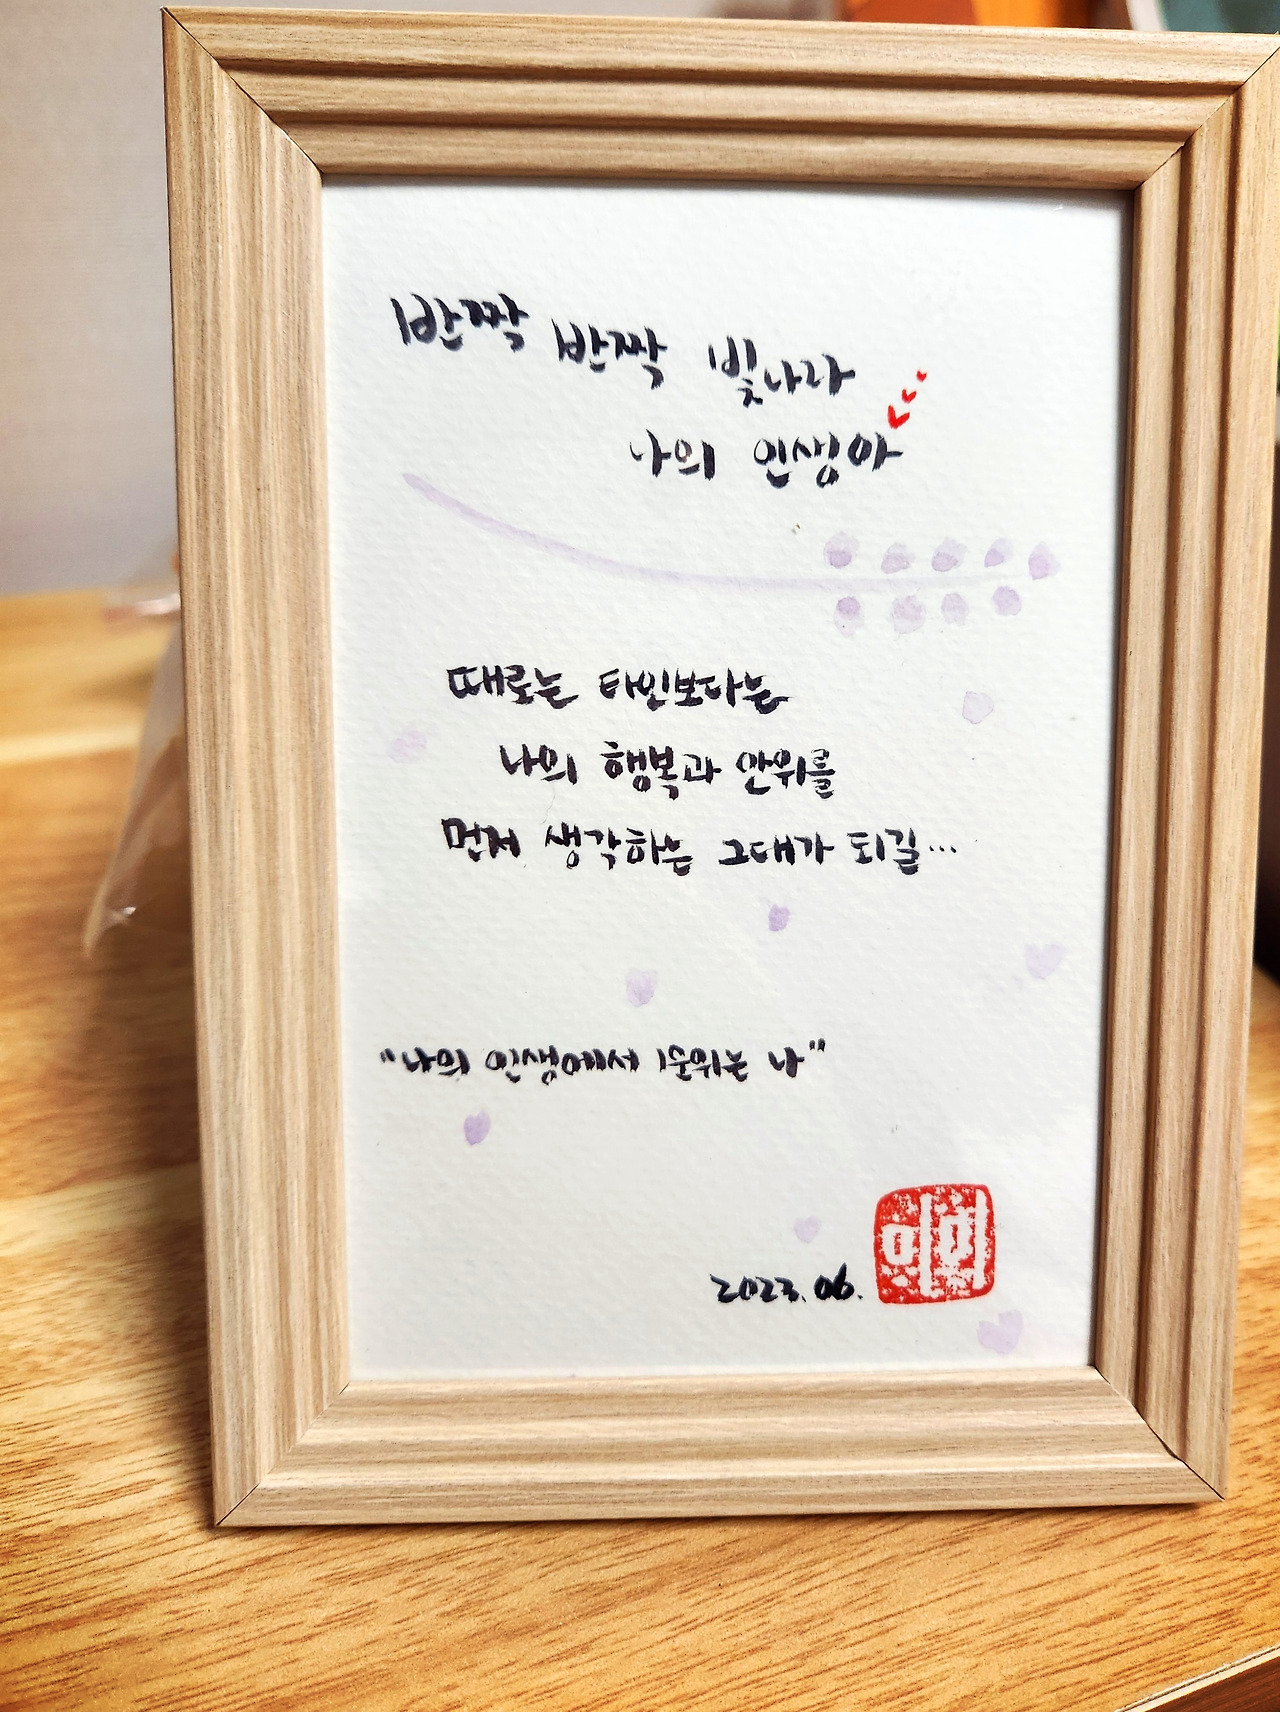 반짝 반짝 빛나라
나의 인생아
때로는 타인보다는
나의 행복과 안위를
먼저 생각하는 그대가 되길...
"나의 인생에서 1순위는 나"
2022.06.